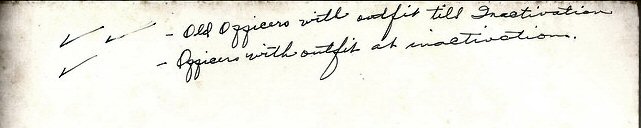 ✓ ✓ - Old Officers with outfit till Inactivation
✓ - Officers with outfit at inactivation.